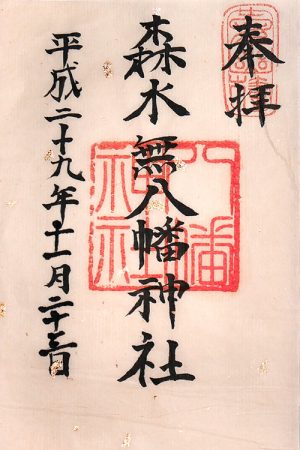 奉拝
森水無八幡神社
八幡神社
平成二十九年十一月二十三日